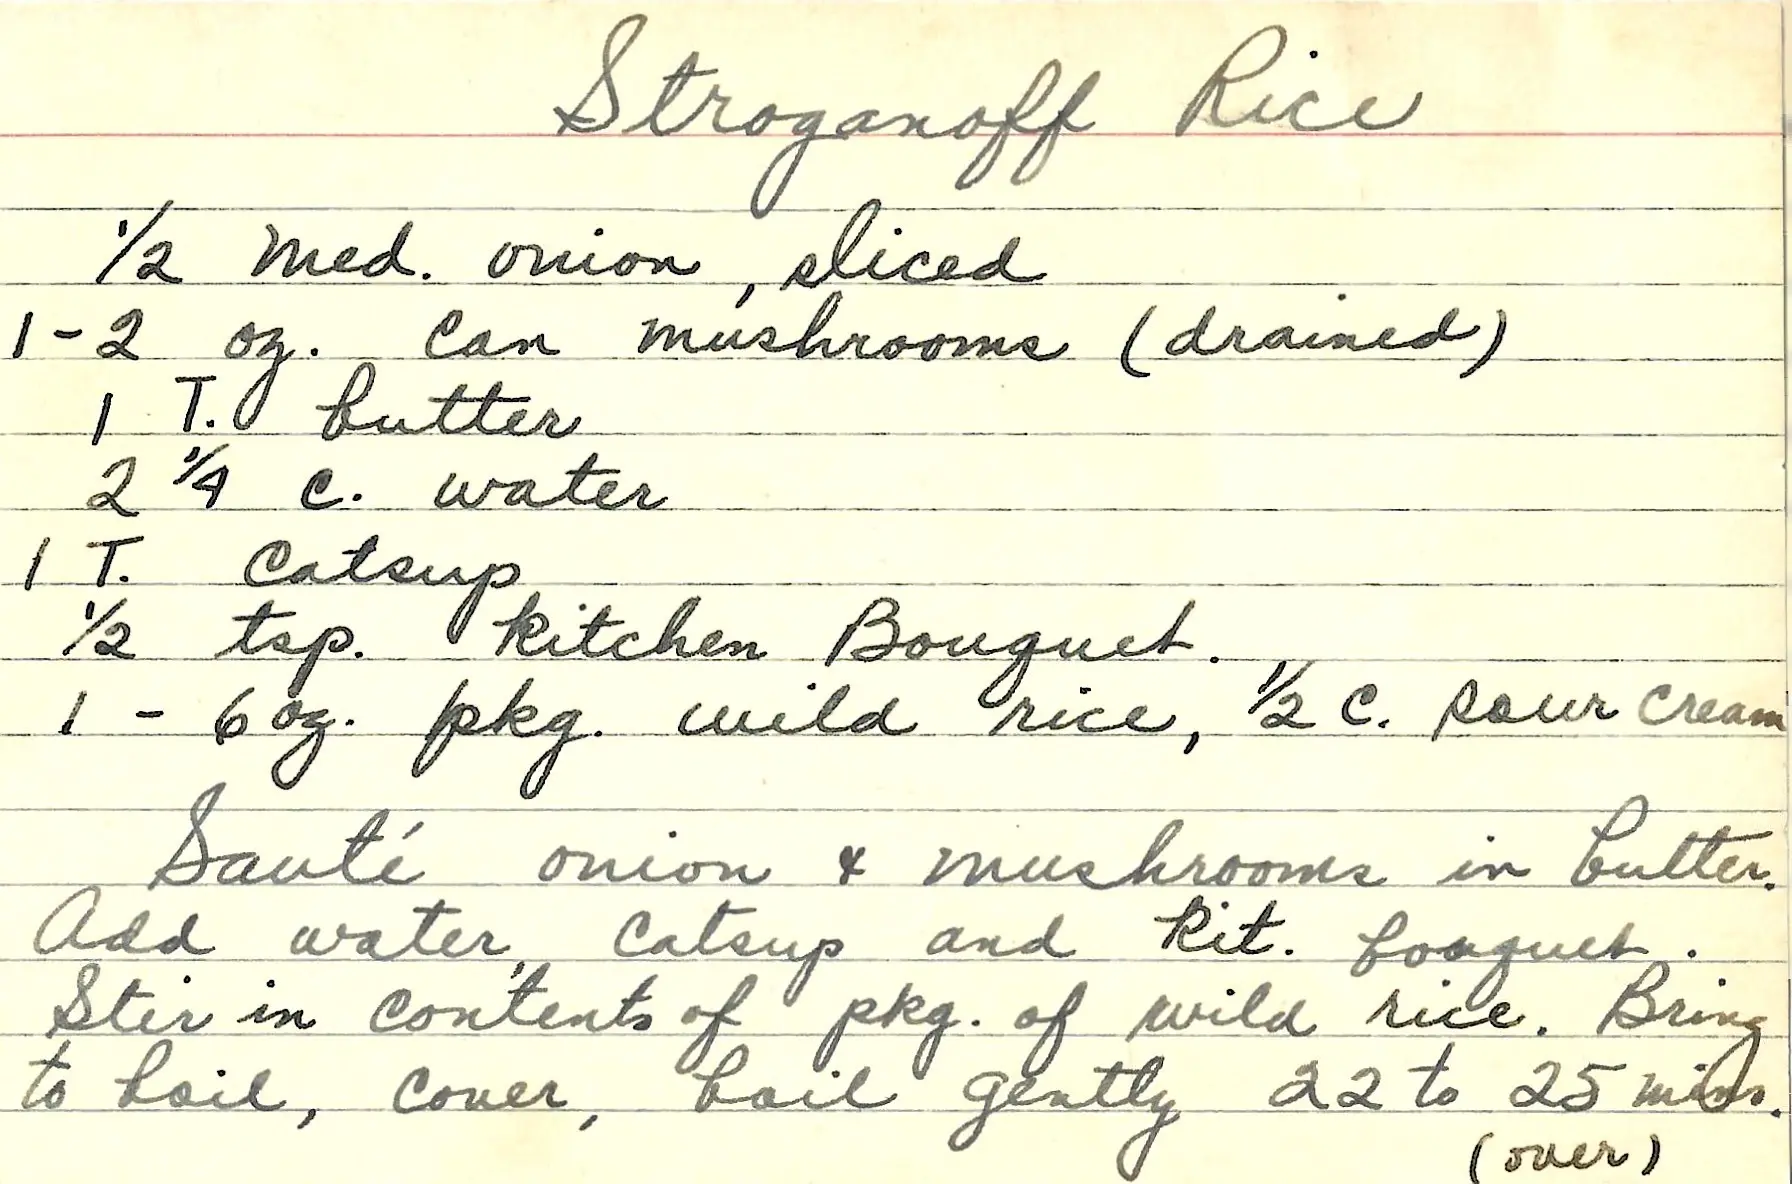 Stroganoff Rice
1/2 med. onion, sliced
1-2 oz. can mushrooms (drained)
1 T. butter
2 1/4 c. water
1 T. catsup
1/2 tsp. kitchen Bouquet.
1 - 6 oz. pkg. wild rice, 1/2 c. sour cream
Sauté onion & mushrooms in butter.
Add water, catsup and kit. bouquet.
Stir in contents of pkg. of wild rice. Bring
to boil, cover, boil gently 22 to 25 mins.
(over)